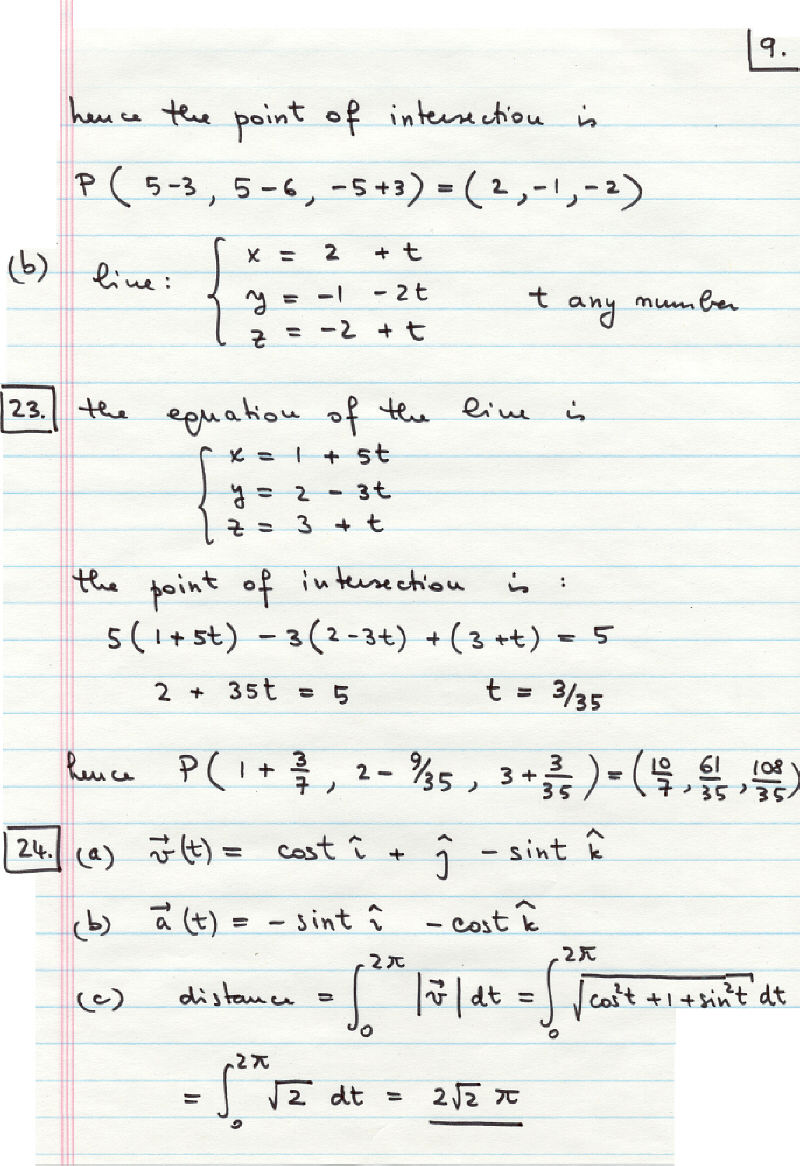 9.
hence the point of intersection is
P ( 5-3 , 5-6 , -5+3) = ( 2 , -1 , -2 )
(b) line: { x = 2 + t
y = -1 - 2t t any number
z = -2 + t
23. the equation of the line is
{ x = 1 + 5t
y = 2 - 3t
z = 3 + t
the point of intersection is :
5(1+5t) - 3(2-3t) + (3+t) = 5
2 + 35t = 5 t = 3/35
hence P( 1 + 3/7 , 2 - 9/35 , 3 + 3/35 ) = ( 10/7 , 61/35 , 108/35 )
24. (a) v⃗(t) = cost î + ĵ - sint k̂
(b) a⃗(t) = - sint î - cost k̂
(c) distance = ∫₀^2π |v⃗| dt = ∫₀^2π √(cos²t + 1 + sin²t) dt
= ∫₀^2π √2 dt = 2√2 π